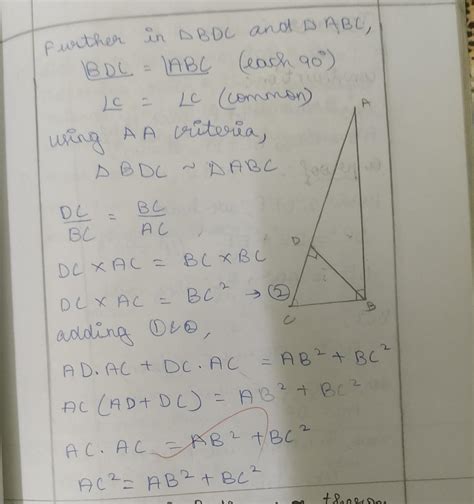 Further in △BDC and △ABC,
∠BDC = ∠ABC (each 90°)
∠C = ∠C (common)
using AA criteria,
△BDC ~ △ABC.
DC/BC = BC/AC
DC × AC = BC × BC
DC × AC = BC² → ②
adding ① & ②,
AD.AC + DC.AC = AB² + BC²
AC (AD + DC) = AB² + BC²
AC. AC = AB² + BC²
AC² = AB² + BC²
A
D
C
B